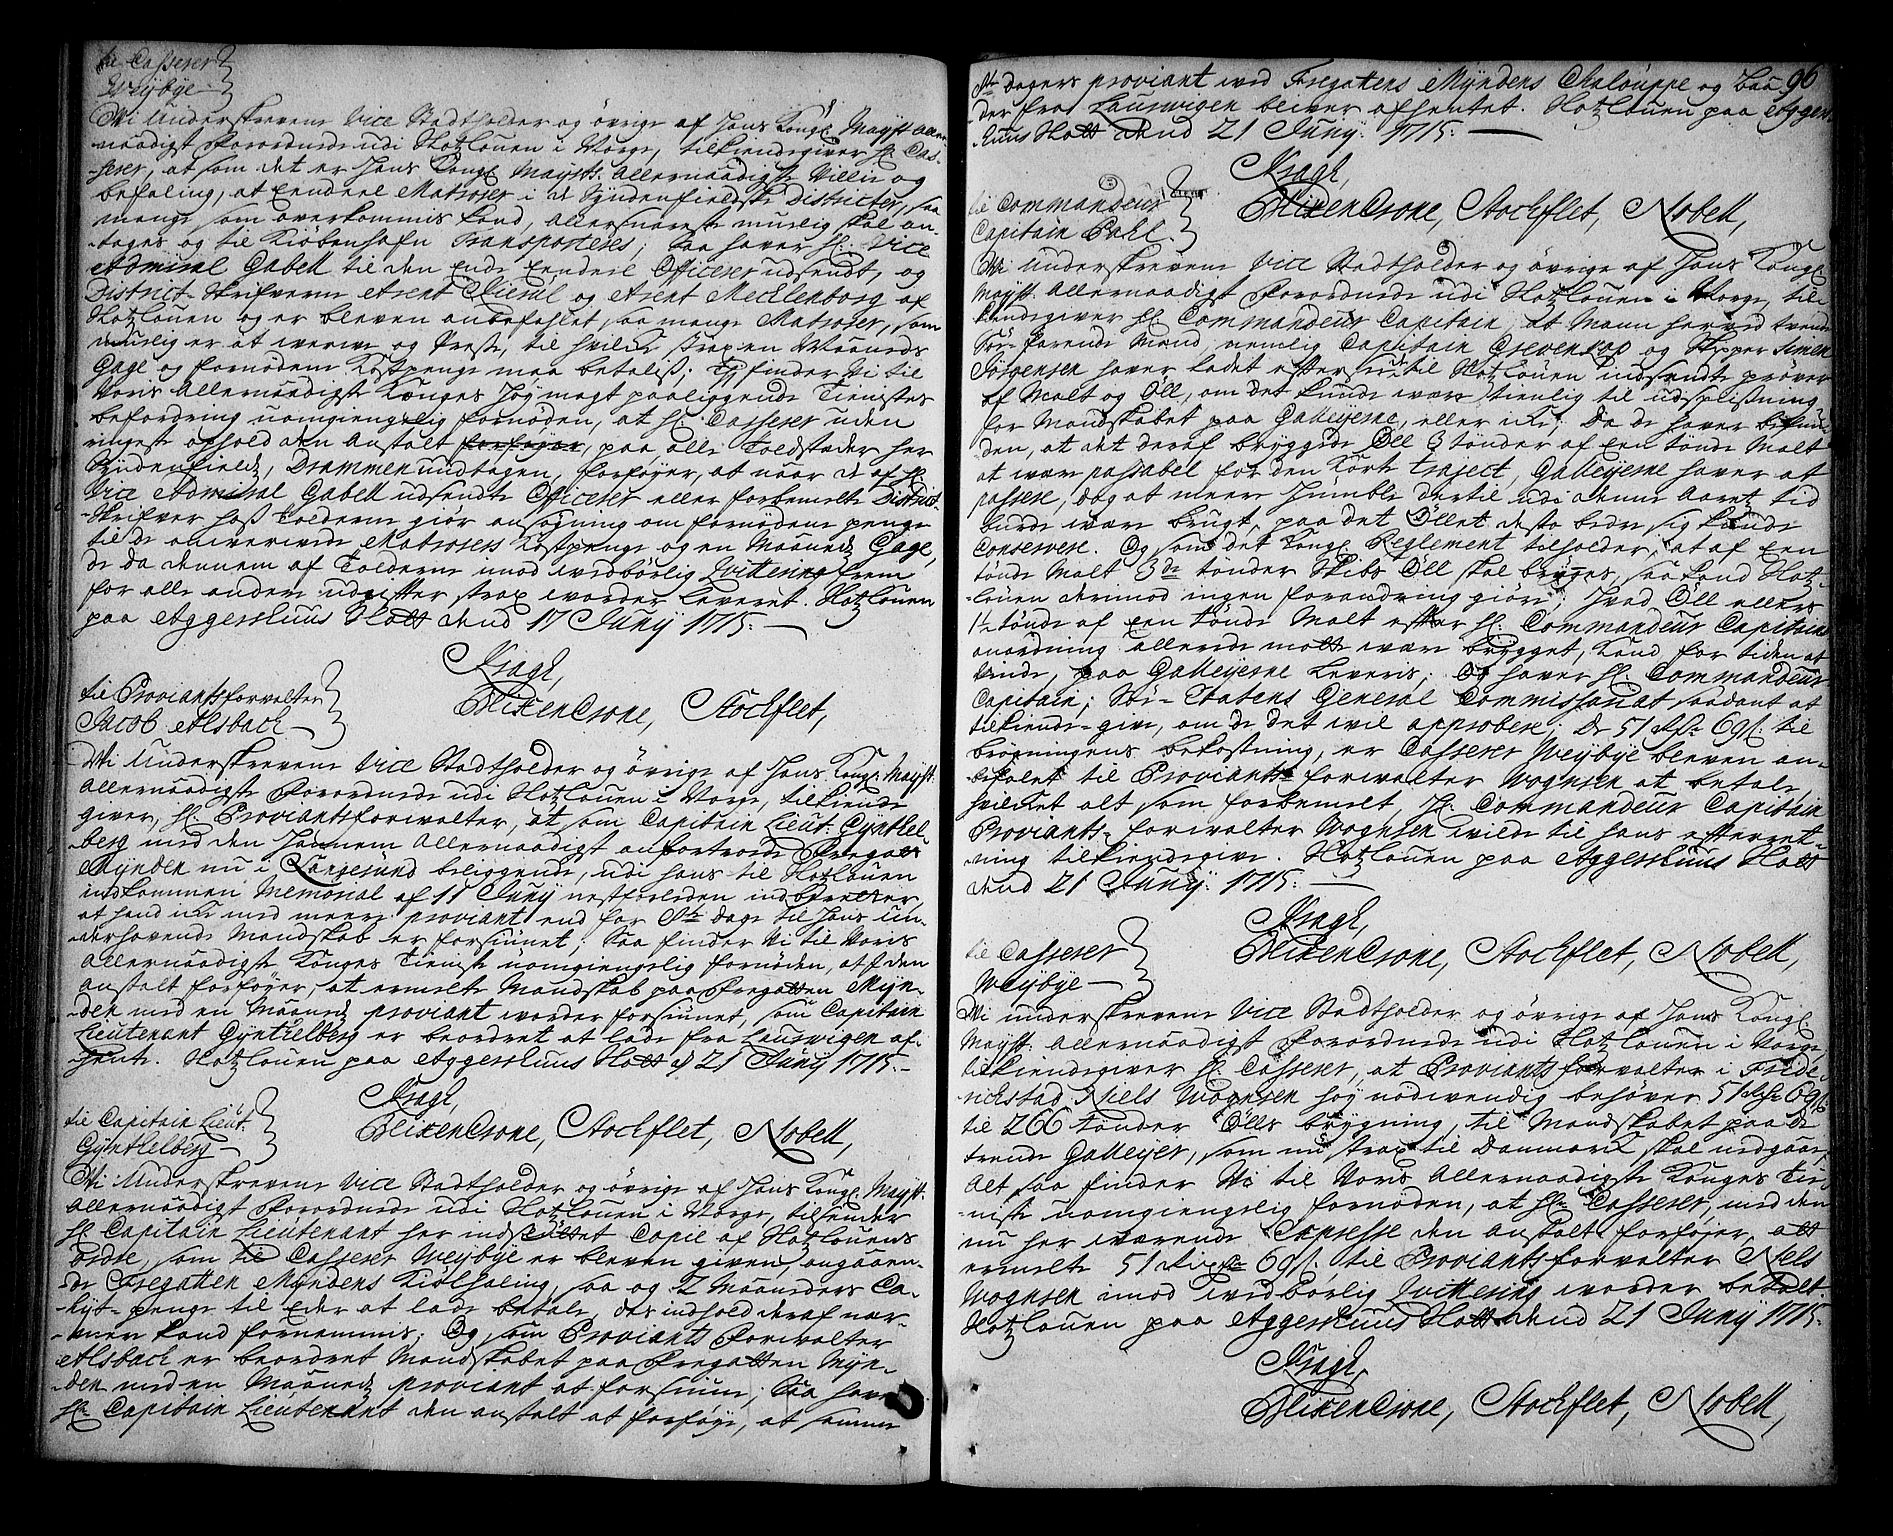 til Casserer
Weybye
Wi Underskrevene Vice Stadtholder og øvrige af Hans Kongl. Mayst. Aller-
naadigst Forordnede udi Slotzlouen i Norge, tilkiendegiver Hr. Cas-
serer, at som det er Hans Kongl. Maysts. Allernaadigste Villie og
befaling, at Eendeel Matroser i de Syndenfieldske Districter, saa
mange som overkommis kand, allersnareste muelig skal an-
tages og til Kiøbenhafn Transporteres; Saa haver Hr. Vice
Admiral Gabell til den Ende Eendeel Officerer udsendt, og
District-Skrifverne Arent Kierul og Arent Mecklenborg af
Slotzlouen og er bleven anbefahlet, saa mange Matroser, som
muelig er at werwe og Preste, til hvilke strax en Maaneds
Gage og fornøden Kostpenge maa betales; Thi finder Wi til
Voris Allernaadigste Konges Høy magt paaliggende Tienistes
befordring uomgiengelig fornøden, at Hr. Casserer uden
ringeste ophold den Anstalt forføyer, paa alle Toldstæder her
Syndenfields, Drammen undtagen, forføyer, at naar de af Hr.
Vice Admiral Gabell udsendte Officerer eller forbemelte District-
Skrifver hos Tolderne giør ansøgning om fornødne penge
til de anwerwede Matrosers Kostpenge og en Maaneds Gage,
de da dennem af Tolderne imod wedbørlig Qvittering frem
for alle andre udgifter strax worder leveret. Slotzlouen
paa Aggershuus Slott dend 17 Junij 1715.
Kragh,
BlixenCrone, Stochflet,
til Proviantsforvalter
Jacob Alsbach
Wi Underskrevene Vice Stadtholder og øvrige af Hans Kongl. Mayst.
Allernaadigste Forordnede udi Slotzlouen i Norge, tilkiende
giver, Hr. Proviantsforvalter, at som Capitain Lieut. Gyntel-
berg med den Hannem Allernaadigst anfortroede Fregatt
Mynden nu i Langesund beliggende, udi Hans til Slotzlouen
indkommen Memorial af 11 Juny nestforleden indberetter,
at hand icke med meere proviant end for 8te dage til Hans un-
derhavende Mandskab er forsiunet; Saa finder Wi til Voris
Allernaadigste Konges Tieniste uomgiengelig fornøden, at den
anstalt forføyer, at ermelte Mandskab paa Fregatten Myn-
den med en Maaneds proviant worder forsiunet, som Capitain
Lieutenant Gyntelberg er beordret at lade fra Laurwigen af-
hente. Slotzlouen paa Aggershuus Slott d 21 Juny 1715.
Kragh,
BlixenCrone, Stochflet, Nobell,
til Capitain Lieut.
Gyntelberg
Wi Underskrevene Vice Stadtholder og øvrige af Hans Kongl. Mayst.
Allernaadigst Forordnede udi Slotzlouen i Norge, tilsender
Hr. Capitain Lieutenant her indsluttet Copie af Slotzlouens
Ordre, som til Casserer Weybye er bleven given, angaaen-
de Fregatten Myndens Kiølhaling, saa og 2 Maaneders Ca-
hyt-penge til Eder at lade betale, des indhold deraf nær-
mere kand fornemmis; Og som Proviants Forvalter
Alsbach er beordret Mandskabet paa Fregatten Myn-
den med en Maaneds proviant at forsiune; Saa haver
Hr. Capitain Lieutenant den anstalt at forføye, at samme
96
8te dagers proviant wed Fregattens Myndens Chalouppe og Baa-
der fra Laurwigen bliver afhentet. Slotzlouen paa Agger-
shuus Slott dend 21 Juny. 1715.
Kragh,
BlixenCrone, Stochflet, Nobell,
til Commandeur
Capitain Pahl.
Wi Underskrevene Vice Stadtholder og øvrige af Hans Kongl.
Mayst. Allernaadigst Forordnede udi Slotzlouen i Norge, til-
kiendegiver Hr. Commandeur Capitain, at Mann herved tvende
Søe-farende Mænd, nemlig Capitain Crevensop og Skipper Simen
Sørensen haver ladet eftersee til Slotzlouen indsendte prøver
af Malt og Øll, om det kunde være tienlig til udspiisning
for Mandskabet paa Galleyerne, eller icke; Da de haver befun-
den, at det deraf bryggede Øll 3 tønder af een tønde Malt
at være passabel for den kort traject, Galleyerne haver at
passere, dog at meere Humble dertil udi denne Aaretz tid
burde være brugt, paa det Øllet desto bedre sig kunde
Conservere. Og som det Kongl. Reglement tilholder, at af Een
tønde Malt 3de tønder Skibs Øll skal brygges, saa kand Slotz-
louen dermod ingen forandring giøre; Hvad Øll ellers
1½ tønde af Een tønde Malt efter Hr. Commandeur Capitains
anordning allerede motte være brygget, kand for tiden at
vinde, paa Galleyerne Leveris; Og haver Hr. Commandeur
Capitain, Søe-Etatens General Commissariat saadant at
tilkiende-give, om de det wil approbere; De 51 Rdr 69 s. til
brøgningens bekostning, er Casserer Weybye bleven an-
befalet til Proviants-forwalter Wognsen at betale,
hvilket alt som forbemelt, Hr. Commandeur Capitain
Proviants-forwalter Wognsen wilde til hans efterret-
ning tilkiendegive. Slotzlouen paa Aggershuus Slott
dend 21 Juny. 1715.
Kragh,
BlixenCrone, Stochflet, Nobell,
til Casserer
Weybye
Wi underskrevene Vice Stadtholder og øvrige af Hans Kongl.
Mayst. Allernaadigst Forordnede udi Slotzlouen i Norge,
tilkiendegiver Hr. Casserer, at Proviantsforvalter i Fride-
richstad Niels Wognsen høy nødvendig behøver 51 Rdr 69 s.
til 266 tønder Ølls brygning, til Mandskabet paa de
trende Galleyer, som nu strax til Danmark skal udgaae,
Alt saa finder Wi til Voris Allernaadigste Konges Tie-
niste uomgiengelig fornøden, at Hr. Casserer, med den
nu her wærende Expresse den anstalt forføyer, alt
ermelte 51 Rixdr 69 s. til Proviantsforvalter Niels
Wognsen imod wedbørlig Qvittering worder betalt.
Slotzlouen paa Aggershuus Slott dend 21 Juny 1715.
Kragh,
BlixenCrone, Stochflet, Nobell,